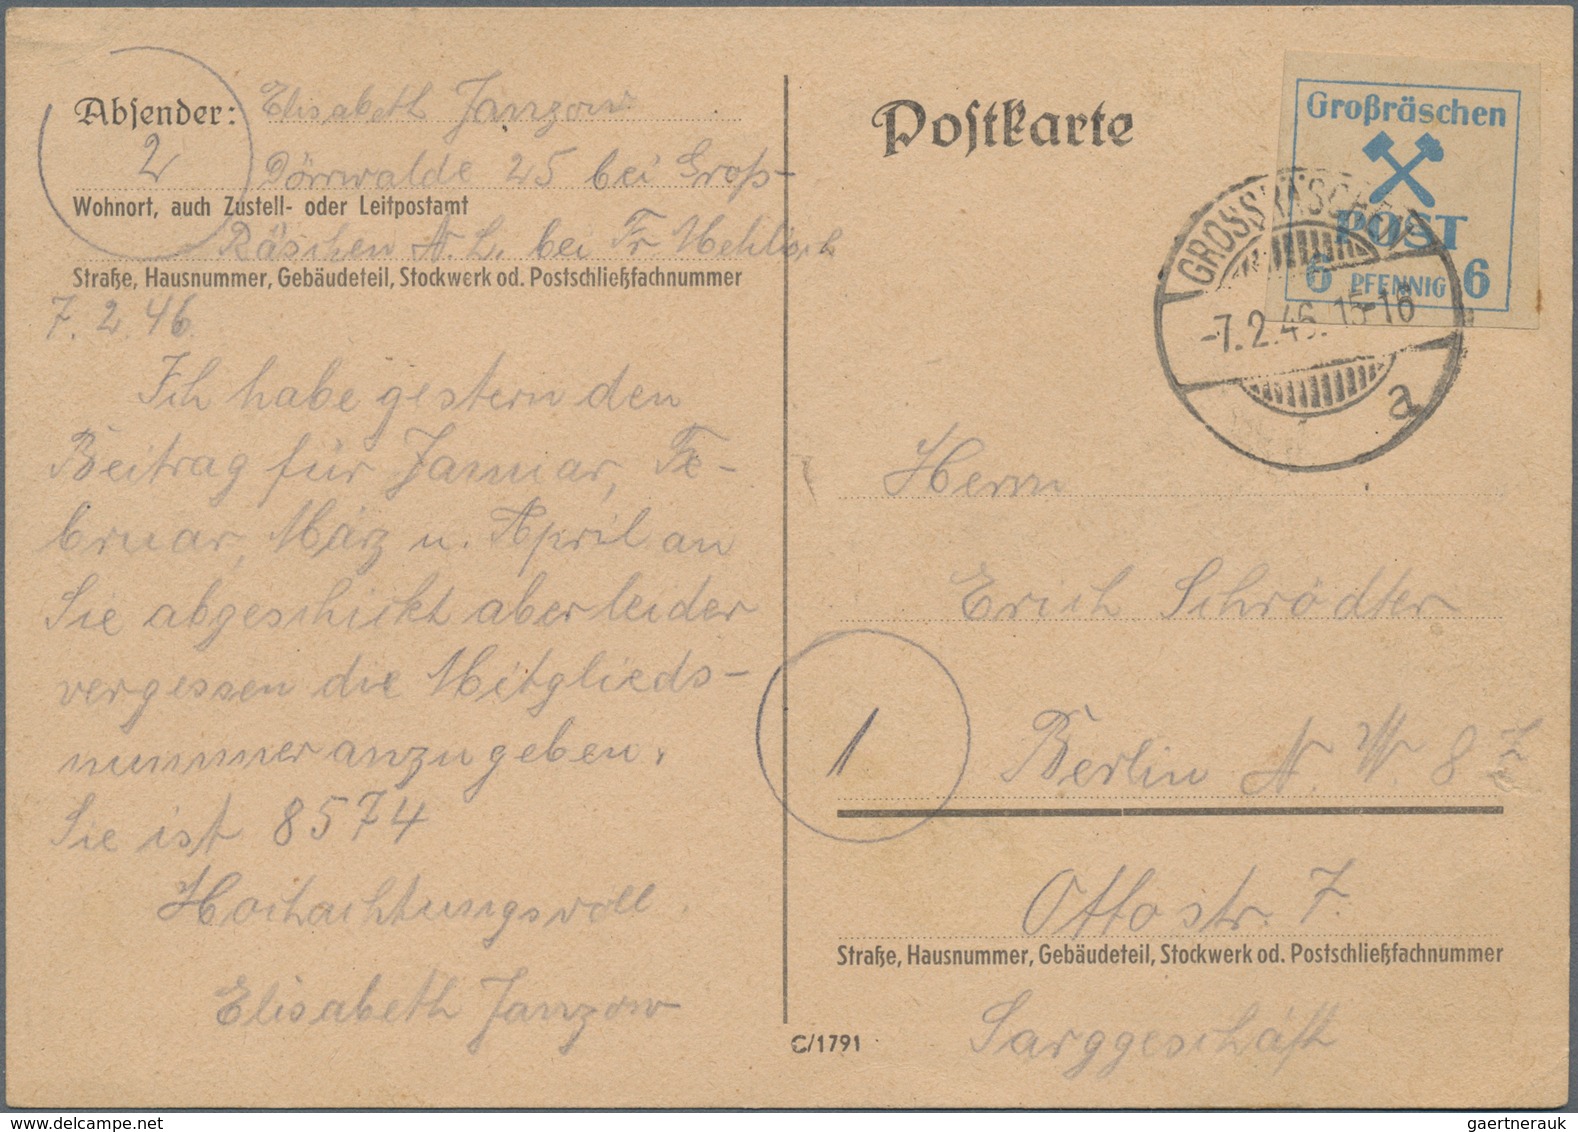 Absender: Elisabeth Janzow
2 Dörrwalde 25 bei Groß-
Wohnort, auch Zustell- oder Leitpostamt
Räschen N. L. bei Fr.
Straße, Hausnummer, Gebäudeteil, Stockwerk od. Postschließfachnummer
7. 2. 46.
Ich habe gestern den
Beitrag für Januar, Fe-
bruar, März u. April an
Sie abgeschickt aber leider
vergessen die Mitglieds-
nummer anzugeben.
Sie ist 8574
Hochachtungsvoll
Elisabeth Janzow
C/1791
Postkarte
Großräschen
POST
6 PFENNIG 6
GROSSRÄSCHEN
-7. 2. 46. 15-16
a
Herrn
Erich Schrödter
1 Berlin N. W. 8
Ottostr. 7.
Straße, Hausnummer, Gebäudeteil, Stockwerk od. Postschließfachnummer
Sarggeschäft
www.delcampe.net
gaertnerauk